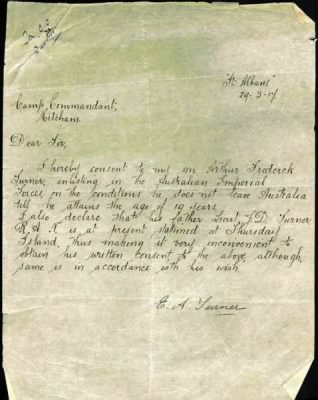 "St Albans"
29-3-17
Camp Commandant,
Mitcham.
Dear Sir,
I hereby consent to my son Arthur Frederick
Turner, enlisting in the Australian Imperial
Forces, on the conditions he does not leave Australia
till he attains the age of 19 years.
I also declare that his father Lieut J. D. Turner
R.A.R. is at present stationed at Thursday
Island, thus making it very inconvenient to
obtain his written consent to the above, although
same is in accordance with his wish.
E. A. Turner